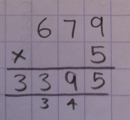 679
× 5
3395
34